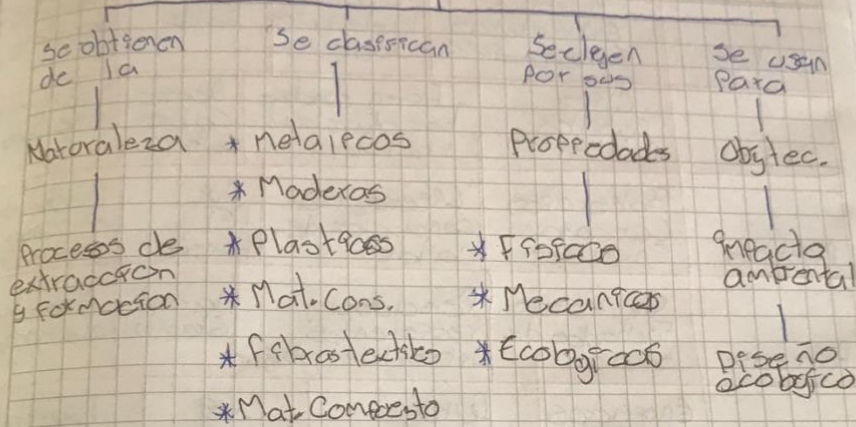 se obtienen
de la
Naturaleza
Procesos de
extraccion
y formacion
Se clasifican
* Metalicos
* Maderas
* Plasticos
* Mat. Cons.
* Fibras textiles
* Mat. Compuesto
Se eligen
por sus
Propiedades
* Fisicas
* Mecanicas
* Ecologicas
Se usan
para
Objtec.
impacto
ambiental
Diseño
ecologico